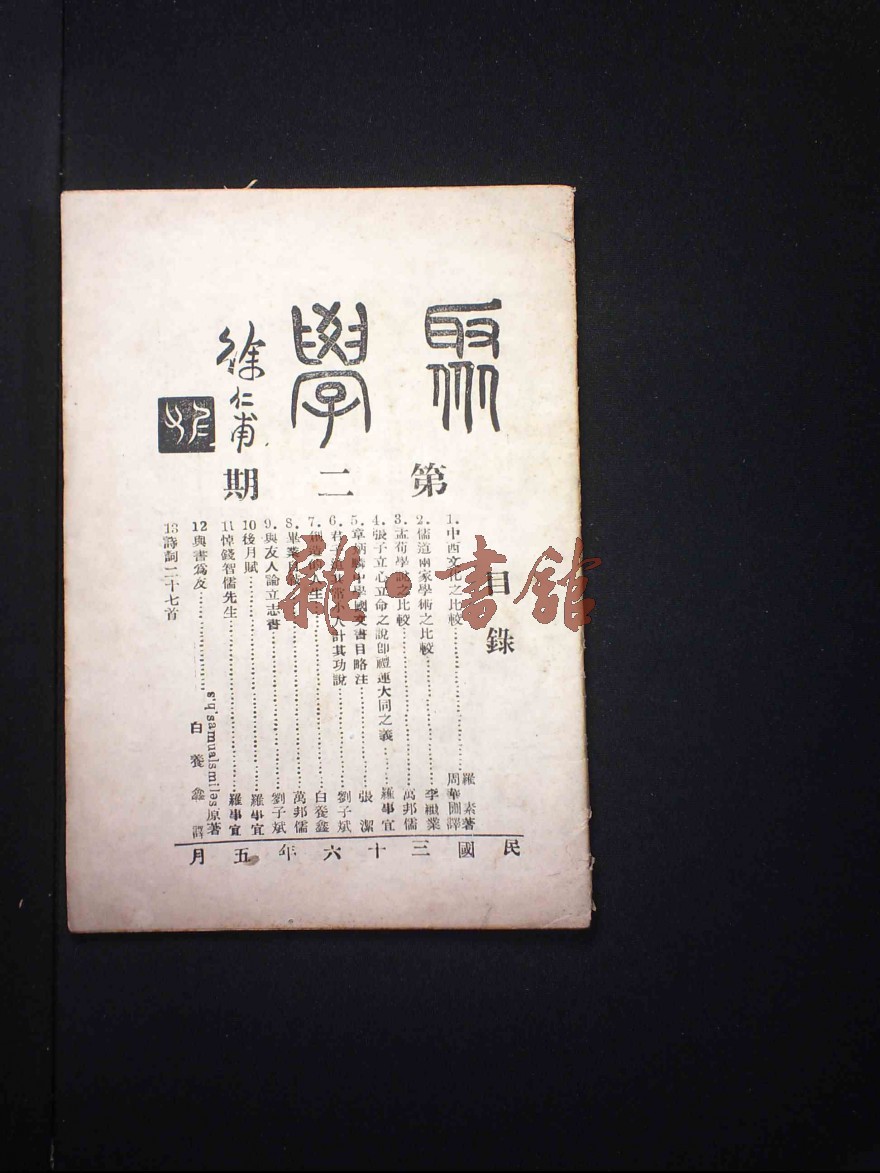 聚學
徐仁甫
第二期
目錄
1. 中西文化之比較 羅素著 周華國譯
2. 儒道兩家學術之比較 李繼業
3. 孟荀學說之比較 萬邦儒
4. 張子立心立命之說卽禮運大同之義 羅事宜
5. 章炳麟中學國文書目略注 張潔
6. 君子道其常小人計其功說 劉子斌
7. 創造的人生 白養鑫
8. 畢業 萬邦儒
9. 與友人論立志書 劉子斌
10 後月賦 羅事宜
11 悼錢智儒先生 羅事宜
12 與書爲友 s'q'samualsmiles原著 白養鑫譯
13 詩詞二十七首
民國三十六年五月
雜·書館